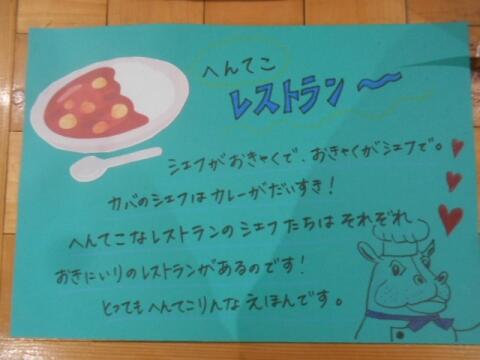 へんてこ
レストラン〜
シェフがおきゃくで、おきゃくがシェフで。
カバのシェフはカレーがだいすき！
へんてこなレストランのシェフたちはそれぞれ
おきにいりのレストランがあるのです！
とってもへんてこりんなえほんです。